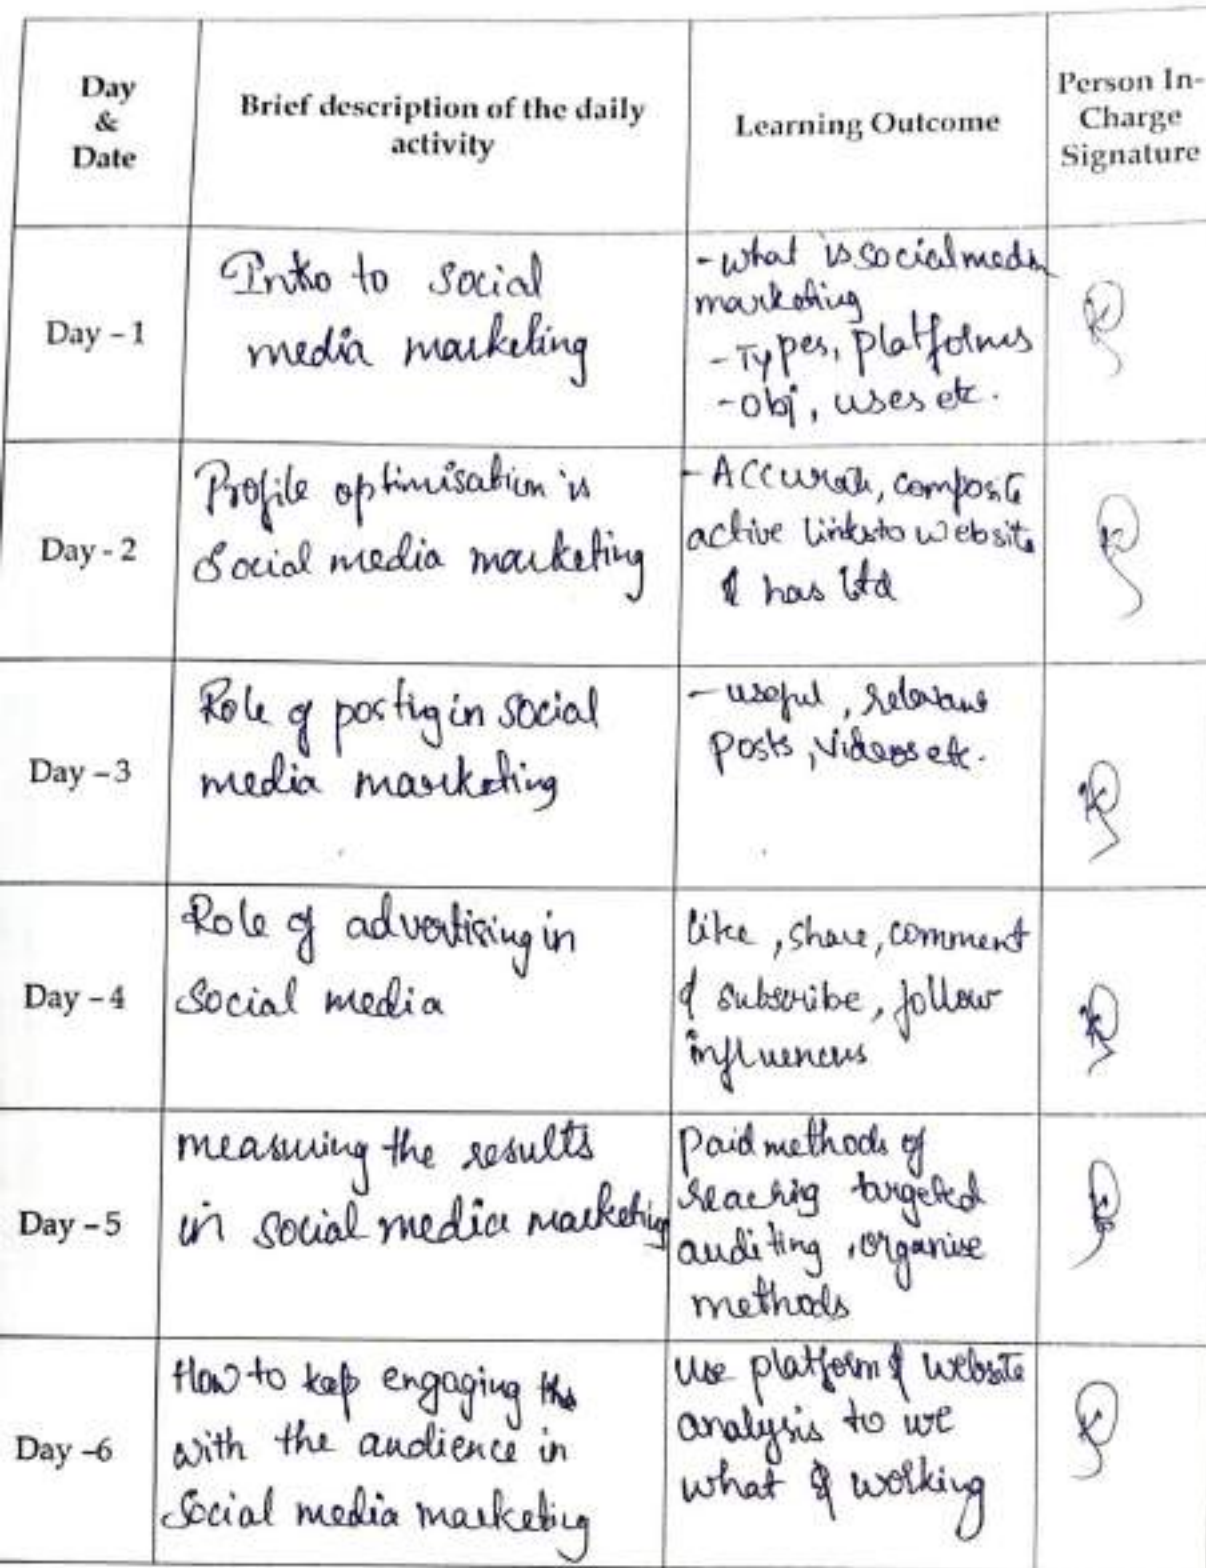 Day
&
Date
Brief description of the daily
activity
Learning Outcome
Person In-
Charge
Signature
Day - 1
Intro to social
media marketing
- what is social media
marketing
- Types, platforms
- obj, uses etc.
Day - 2
Profile optimisation is
social media marketing
- Accurate,
active links to website
& has
Day - 3
Role of postig in social
media marketing
- useful, relevant
posts, videos etc.
Day - 4
Role of advertising in
social media
like, share, comment
& subscribe, follow
influencers
Day - 5
measuring the results
in social media marketing
paid methods of
reachig targeted
auditing, organise
methods
Day -6
How to kep engaging
with the audience in
social media marketing
use platform & website
analysis to we
what working